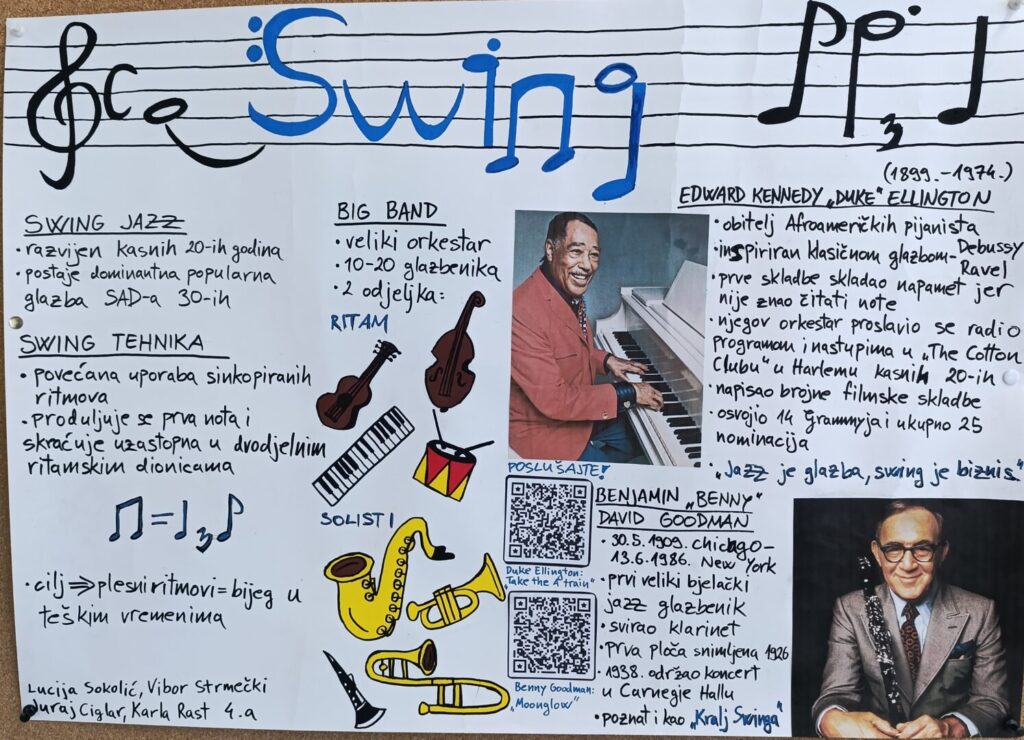 Swing
SWING JAZZ
• razvijen kasnih 20-ih godina
• postaje dominantna popularna
glazba SAD-a 30-ih
SWING TEHNIKA
• povećana uporaba sinkopiranih
ritmova
• produljuje se prva nota i
skraćuje uzastopna u dvodjelnim
ritamskim dionicama
• cilj ⇒ plesni ritmovi = bijeg u
teškim vremenima
Lucija Sokolić, Vibor Strmečki
Juraj Ciglar, Karla Rast 4.a
BIG BAND
• veliki orkestar
• 10-20 glazbenika
• 2 odjeljka:
RITAM
SOLISTI
(1899.-1974.)
EDWARD KENNEDY „DUKE" ELLINGTON
• obitelj Afroameričkih pijanista
• inspiriran klasičnom glazbom- Debussy
Ravel
• prve skladbe skladao napamet jer
nije znao čitati note
• njegov orkestar proslavio se radio
programom i nastupima u „The Cotton
Clubu" u Harlemu kasnih 20-ih
• napisao brojne filmske skladbe
• osvojio 14 Grammyja i ukupno 25
nominacija
„Jazz je glazba, swing je biznis"
POSLUŠAJTE!
Duke Ellington:
„Take the A train"
Benny Goodman:
„Moonglow"
BENJAMIN „BENNY"
DAVID GOODMAN
• 30.5.1909. Chicago-
13.6.1986. New York
• prvi veliki bjelački
jazz glazbenik
• svirao klarinet
• prva ploča snimljena 1926
• 1938. održao koncert
u Carnegie Hallu
• poznat i kao „Kralj Swinga"